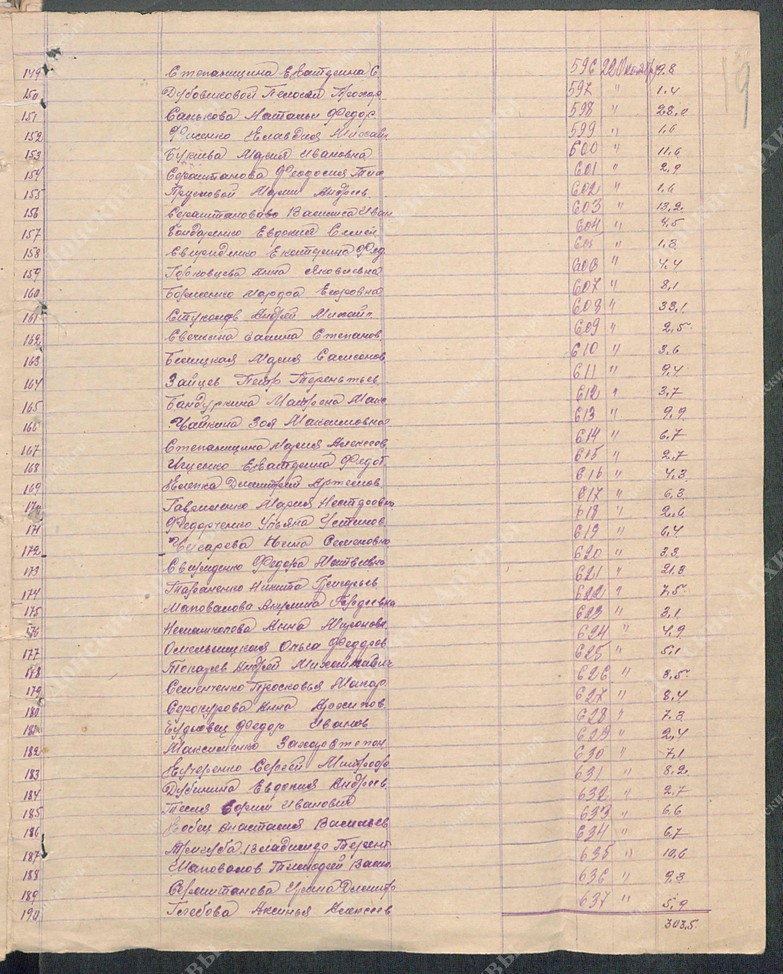 19
149 Степанищина Екатерина С 596 22/I ноября 9.8
150 Дубовиковой Пелогеи Прохор 597 " 1.4
151 Салькова Наталья Федор 598 " 28.0
152 Клавдия Михай 599 " 1.6
153 Букиева Мария Ивановна 600 " 11.6
154 Сероштанова Феодосия 601 " 2.9
155 Марии Андреев 602 " 1.6
156 Василиса Иван 603 " 13.2
157 Бондаренко Евдокия Семен 604 " 4.5
158 Свириденко Екатерина Фед 605 " 1.3
159 Горковцева Анна Яковлевна 606 " 4.4
160 Борисенко Егоровна 607 " 8.1
161 Андрей Михайл 608 " 33.1
162 Свечкина Галина Степанов 609 " 2.5
163 Белицкая Мария Самсонов 610 " 3.6
164 Зайцев Петр Терентьев 611 " 9.4
165 Бандуркина Матрена Макс 612 " 3.7
166 Чайкина Зоя Максимовна 613 " 9.9
167 Степанищина Мария Алексеев 614 " 6.7
168 Ищенко Екатерина Федот 615 " 2.7
169 Дмитрий Артемов 616 " 4.3
170 Гавриленко Мария Нестеровна 617 " 6.3
171 Федорченко Ульяна Устинов 618 " 2.6
172 Чухарева Нина Семеновна 619 " 6.4
173 Свириденко Федора Матвеевна 620 " 3.3
174 Тараненко Никита Григорьев 621 " 21.3
175 Маповалова Акулина Гордеевна 622 " 7.5
176 Анна Миронова 623 " 3.1
177 Омельницкая Ольга Федоров 624 " 4.9
178 Токарев Андрей Михайлович 625 " 5.1
179 Семенченко Просковья Макар 626 " 8.5
180 Серокурова Анна Архипов 627 " 8.4
181 Будковец Федор Иванов 628 " 7.3
182 Максименко Захар Степан 629 " 2.4
183 Кучеренко Сергей Митроф 630 " 7.1
184 Дубинина Евдокия Андреев 631 " 8.2
185 Тесля Сергей Иванович 632 " 2.7
186 Кобец Анастасия Васильев 633 " 6.6
187 Трегуба Владимир Терент 634 " 6.7
188 Шаповалов Тимофей Васил 635 " 10.6
189 Сероштанова Ирина Дмитр 636 " 9.3
190 Глебова Аксинья Алексеев 637 " 5.9
303.5